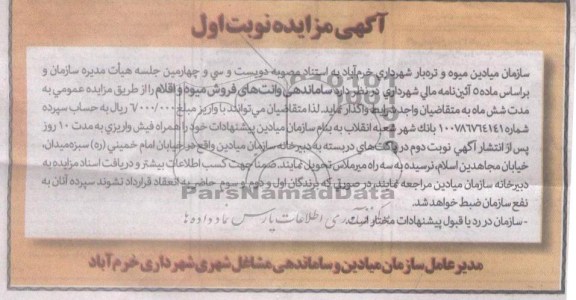 آگهی مزایده نوبت اول
سازمان میادین میوه و تره‌بار شهرداری خرم‌آباد به استناد مصوبه دویست و سی و چهارمین جلسه هیأت مدیره سازمان و
براساس ماده ۵ آئین‌نامه مالی شهرداری در نظر دارد ساماندهی وانت‌های فروش میوه و اقلام را از طریق مزایده عمومی به
مدت شش ماه به متقاضیان واجد شرایط واگذار نماید. لذا متقاضیان می‌توانند با واریز مبلغ ۶/۰۰۰/۰۰۰ ریال به حساب سپرده
شماره ۱۰۰۷۸۶۷۶۴۱۴۱ بانک شهر شعبه انقلاب به بنام سازمان میادین پیشنهادات خود را همراه فیش واریزی به مدت ۱۰ روز
پس از انتشار آگهی نوبت دوم در پاکت‌های دربسته به دبیرخانه سازمان میادین واقع در خیابان امام خمینی (ره) سبزه‌میدان،
خیابان مجاهدین اسلام، نرسیده به سه راه میرملاس تحویل نمایند. ضمناً جهت کسب اطلاعات بیشتر و دریافت اسناد مزایده به
دبیرخانه سازمان میادین مراجعه نمایند. در صورتی که برندگان اول و دوم و سوم حاضر به انعقاد قرارداد نشوند سپرده آنان به
نفع سازمان ضبط خواهد شد.
ParsNamadData
- سازمان در رد یا قبول پیشنهادات مختار است.
اطلاعات پارس نماد داده‌ها
مدیرعامل سازمان میادین و ساماندهی مشاغل شهری شهرداری خرم‌آباد